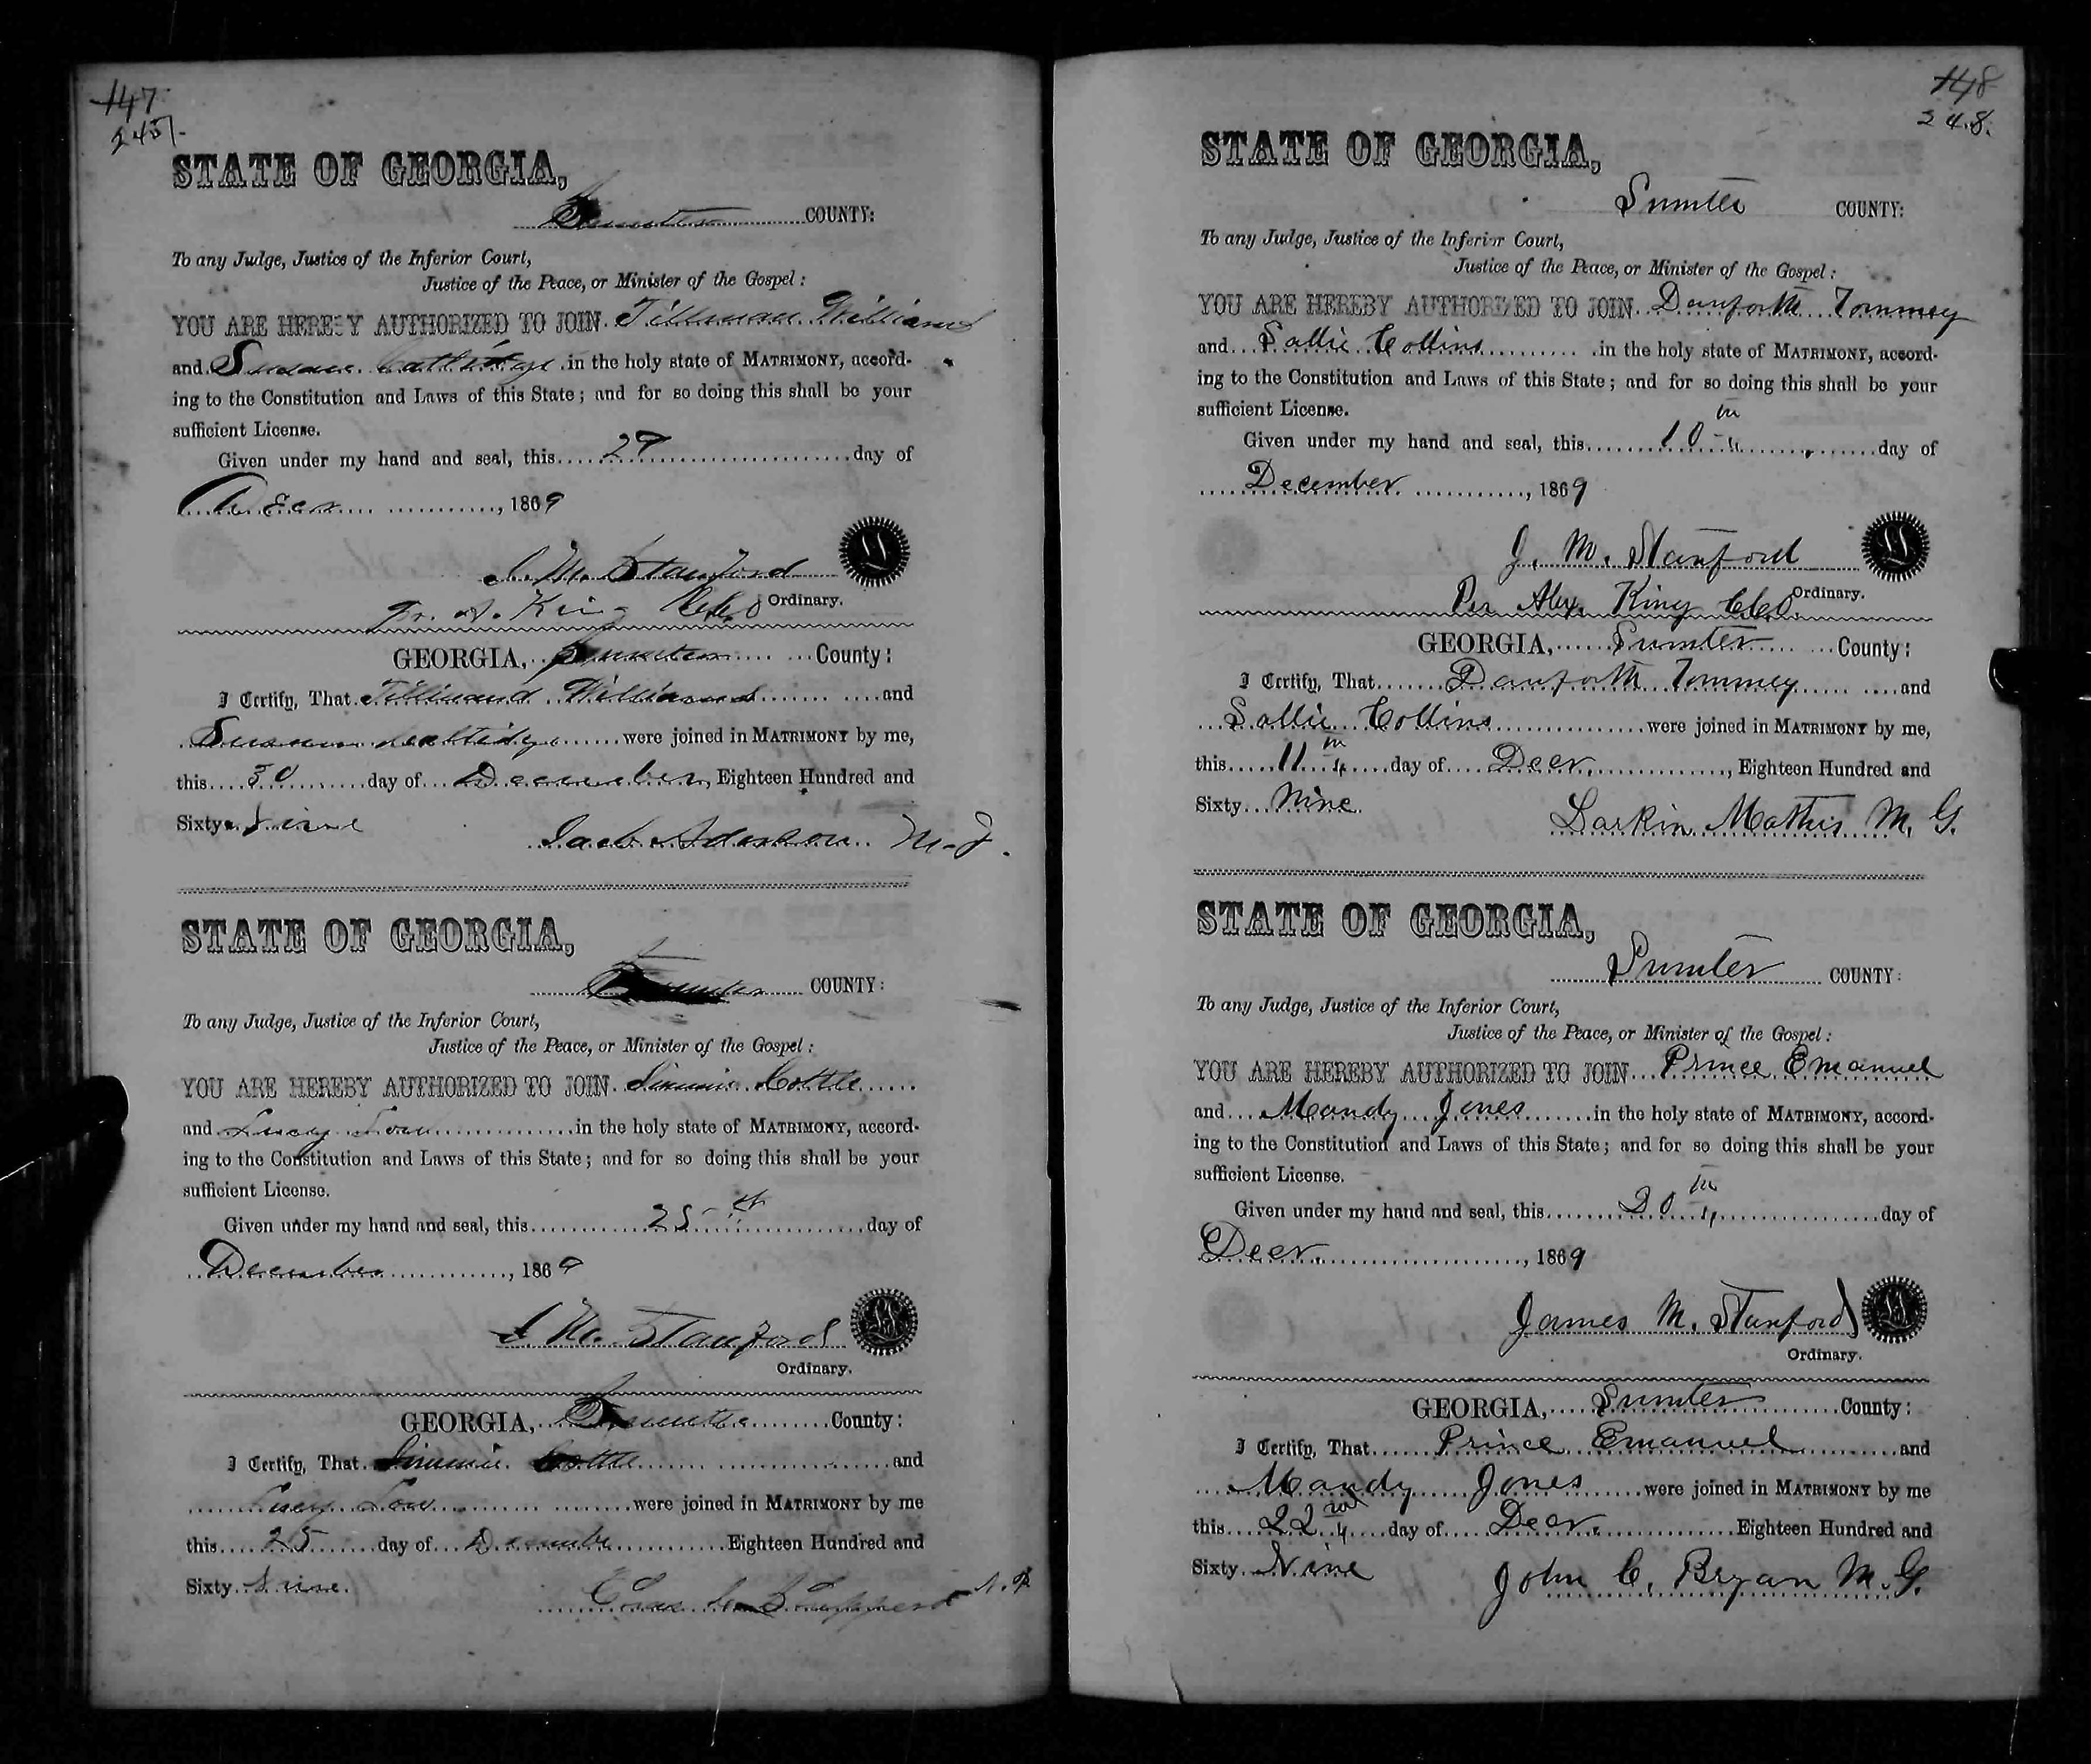 147
247.
STATE OF GEORGIA,
Sumter COUNTY:
To any Judge, Justice of the Inferior Court,
Justice of the Peace, or Minister of the Gospel:
YOU ARE HEREBY AUTHORIZED TO JOIN Tillman Williams
and Susan in the holy state of MATRIMONY, accord-
ing to the Constitution and Laws of this State; and for so doing this shall be your
sufficient License.
Given under my hand and seal, this 29 day of
Decr, 1869
J. M. Stanford
Ordinary.
pr. A. King
GEORGIA, Sumter County:
I Certify, That Williams and
Susan were joined in MATRIMONY by me,
this 30 day of December, Eighteen Hundred and
Sixty Nine
STATE OF GEORGIA,
Sumter COUNTY:
To any Judge, Justice of the Inferior Court,
Justice of the Peace, or Minister of the Gospel:
YOU ARE HEREBY AUTHORIZED TO JOIN Simmie Cottle
and Lucy Low in the holy state of MATRIMONY, accord-
ing to the Constitution and Laws of this State; and for so doing this shall be your
sufficient License.
Given under my hand and seal, this 25th day of
December, 1869
J. M. Stanford
Ordinary.
GEORGIA, County:
I Certify, That Simmie Cottle and
Lucy Low were joined in MATRIMONY by me
this 25 day of Eighteen Hundred and
Sixty Nine.
148
248.
STATE OF GEORGIA,
Sumter COUNTY:
To any Judge, Justice of the Inferior Court,
Justice of the Peace, or Minister of the Gospel:
YOU ARE HEREBY AUTHORIZED TO JOIN Danforth Tommey
and Sallie Collins in the holy state of MATRIMONY, accord-
ing to the Constitution and Laws of this State; and for so doing this shall be your
sufficient License.
Given under my hand and seal, this 10th day of
December, 1869
J. M. Stanford
Ordinary.
Per Alex. King
GEORGIA, Sumter County:
I Certify, That Danforth Tommey and
Sallie Collins were joined in MATRIMONY by me,
this 11th day of Decr., Eighteen Hundred and
Sixty Nine
Larkin Mathis M. G.
STATE OF GEORGIA,
Sumter COUNTY:
To any Judge, Justice of the Inferior Court,
Justice of the Peace, or Minister of the Gospel:
YOU ARE HEREBY AUTHORIZED TO JOIN Prince Emanuel
and Mandy Jones in the holy state of MATRIMONY, accord-
ing to the Constitution and Laws of this State; and for so doing this shall be your
sufficient License.
Given under my hand and seal, this 20th day of
Decr., 1869
James M. Stanford
Ordinary.
GEORGIA, Sumter County:
I Certify, That Prince Emanuel and
Mandy Jones were joined in MATRIMONY by me
this 22nd day of Decr. Eighteen Hundred and
Sixty Nine
John C. Bryan M. G.